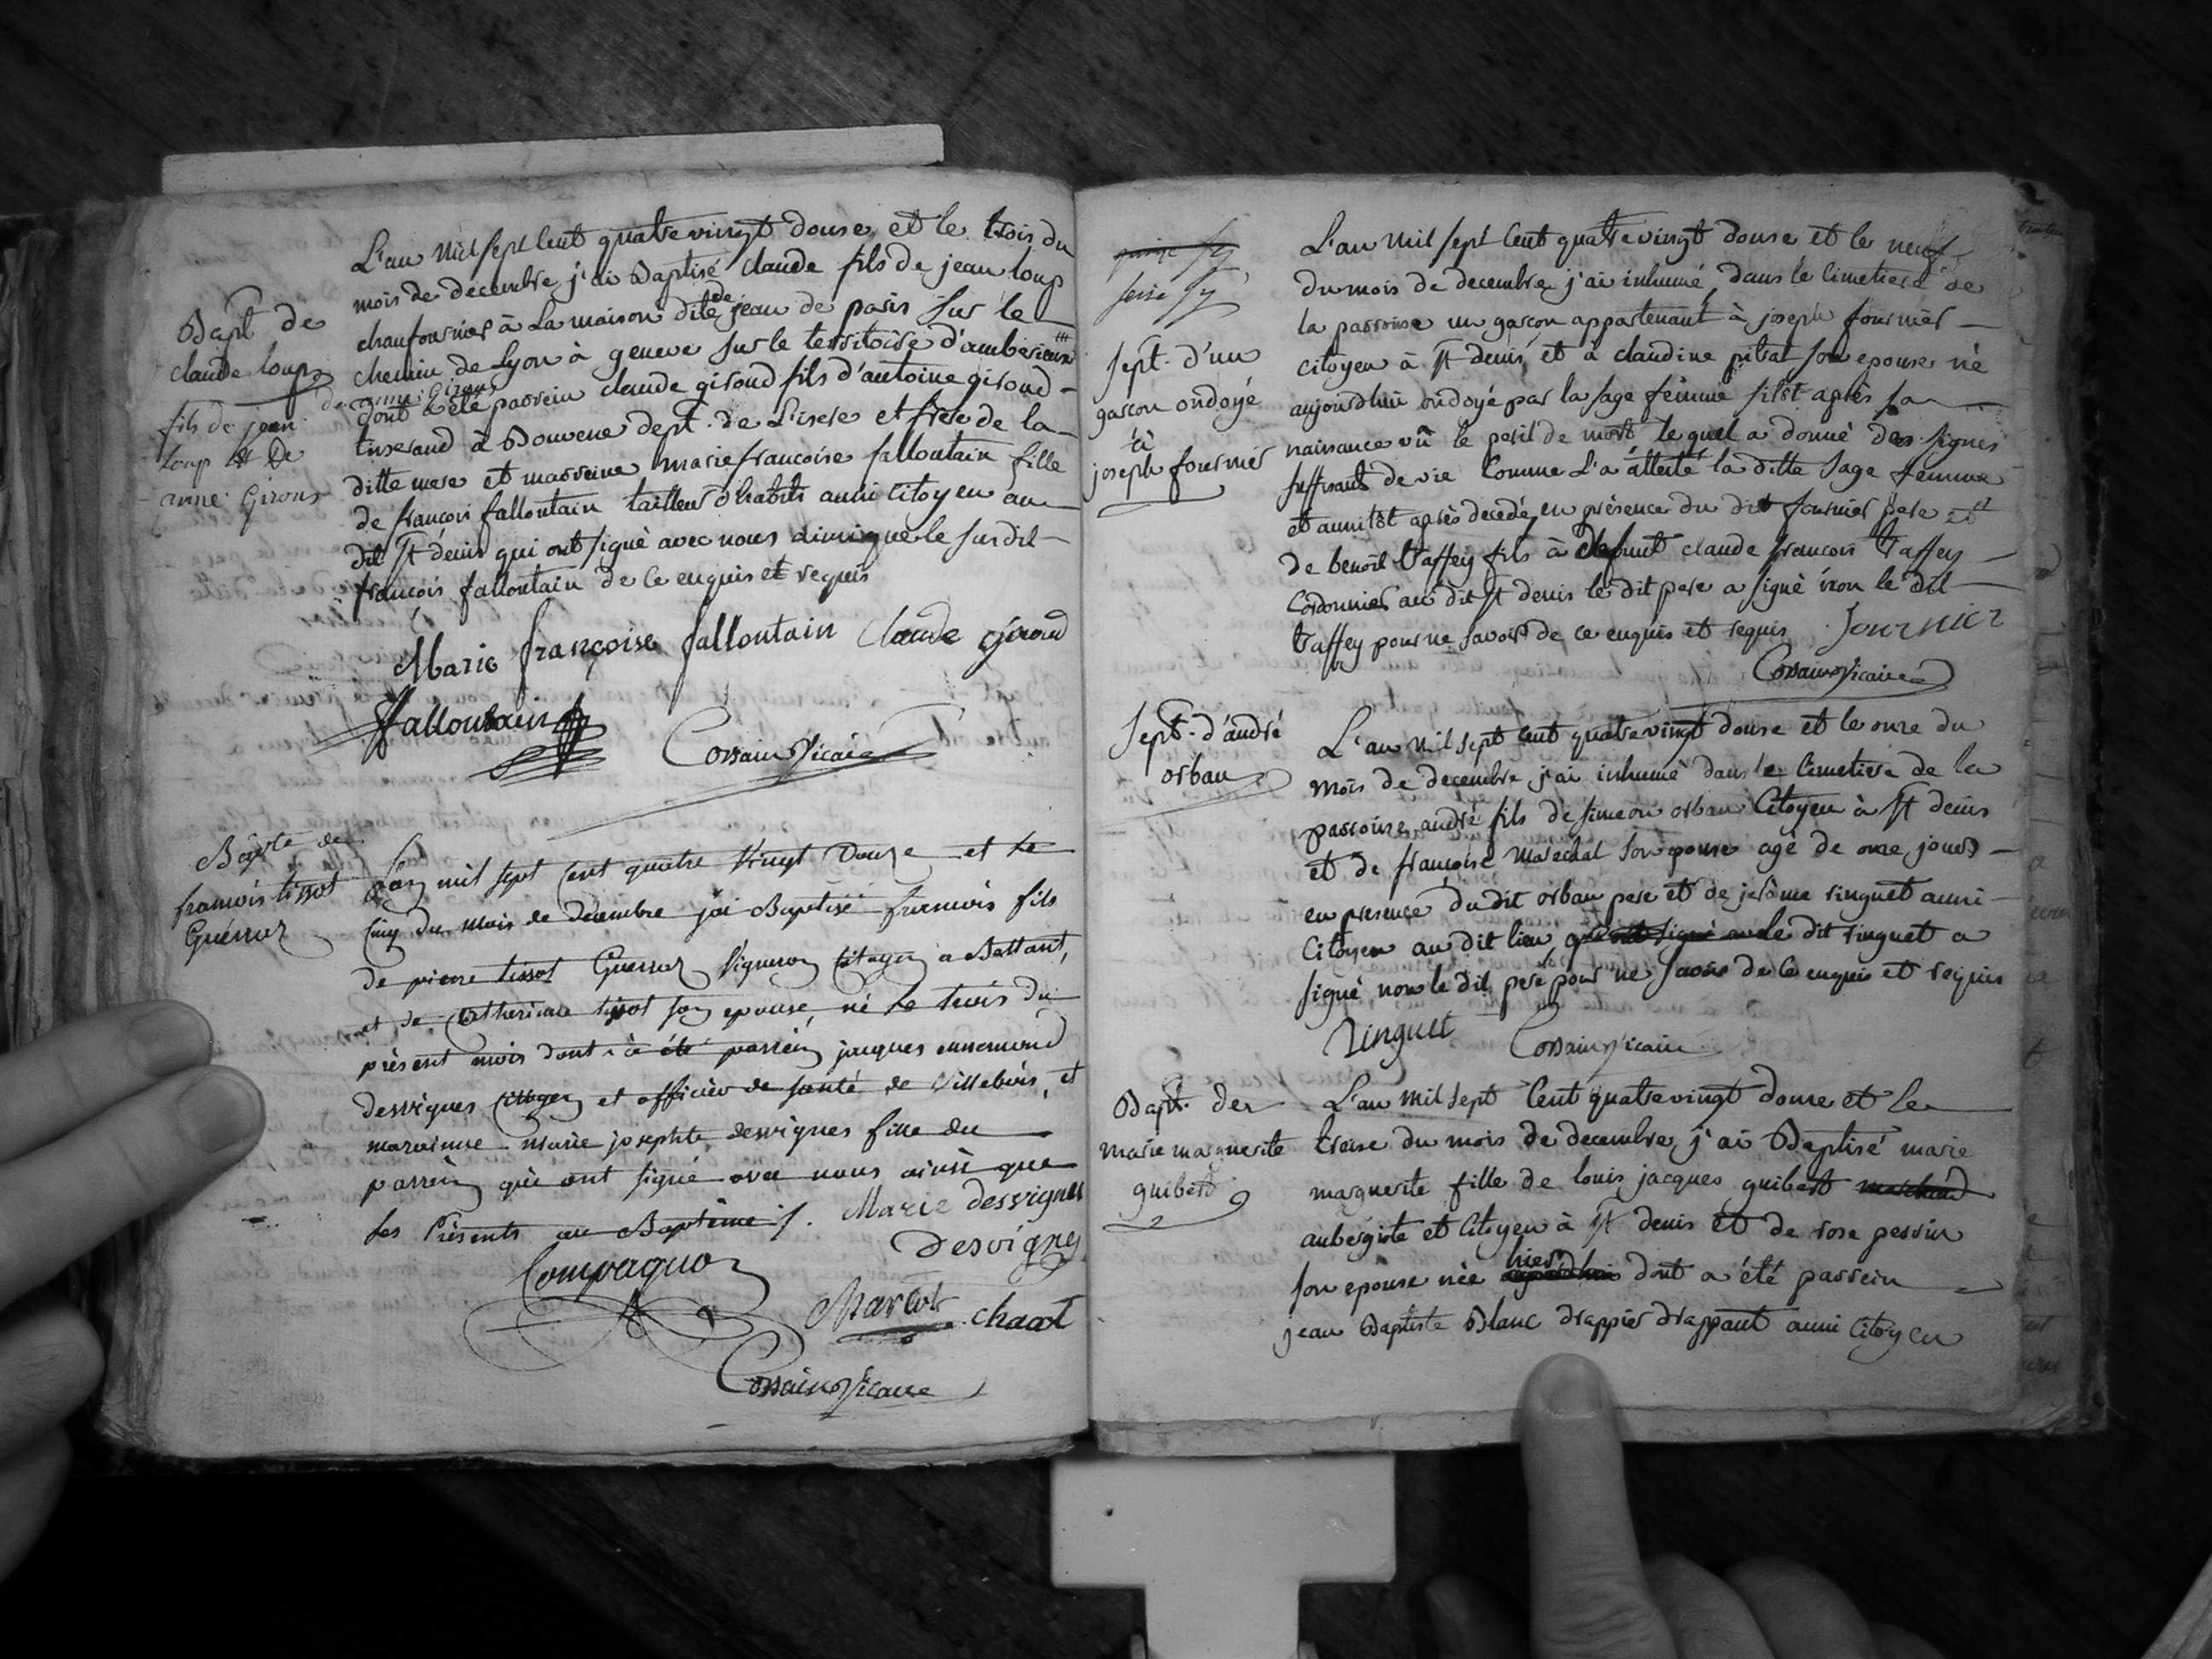 Bapt de
claude loup
fils de jean
loup et De
anne Girons
L'an mil sept cent quatrevingt douse et le trois du
mois de decembre j'ai Baptisé claude fils de jean loup
chaufournier à la maison dite de jean de paris sur le
chemin de Lyon à geneve sur le territoire d'amberieux
de anne Girons
dont a été parrein claude giroud fils d'antoine giroud
tinserand à Bouvene dept. de L'isere et frere de la
ditte mere et marreine marie francoise falloutain fille
de françois falloutain tailleur d'habits aussi citoyen au
dit St denis qui ont signé avec nous ainsi que le susdit
françois falloutain de ce enquis et requis
Marie françoise falloutain Claude giroud
falloutain
Cossain Vicaire
Bapte de
francois tissot
Guérraz
L'an mil sept cent quatre vingt Douze et le
cinq du mois de décembre j'ai Baptisé francois fils
de pierre tissot Guerraz vigneron citoyen a Bettant,
et de Catherinne tissot son epouse, né le trois du
présent mois dont a été parrein jacques ennemond
desvignes citoyen et officier de santé de villebois, et
marainne marie josephte desvignes fille du
parrein qui ont signé avec nous ainsi que
les présents au Baptême /.
Marie desvignes
desvignes
Compagnon
Martot chaat
Cossain Vicaire
seise
sept. d'un
garcon ondoyé
à
joseph fournier
L'an mil sept cent quatrevingt douse et le neuf
du mois de decembre j'ai inhumé dans le cimetiere de
la parroisse un garcon appartenant à joseph fournier
citoyen à St denis, et à claudine pitrat son epouse né
aujourdhui ondoyé par la sage femme sitôt après sa
naissance vû le peril de mort lequel a donné des signes
suffisants de vie comme l'a attesté la ditte sage femme
et aussitôt après decedé, en présence du dit fournier pere et
de benoit Vaffey fils à defunt claude françois Vaffey
cordonnier au dit St denis le dit pere a signé non le dit
Vaffey pour ne savoir de ce enquis et requis fournier
Cossain Vicaire
Sept. d'andré
orban
L'an mil sept cent quatrevingt douse et le onze du
mois de decembre j'ai inhumé dans le cimetiere de la
parroisse, andré fils de simeon orban citoyen à St denis
et de françoise marechal son epouse agé de onze jours
en presence du dit orban pere et de jerôme ringuet aussi
citoyen au dit lieu, qui ont signé avec le dit ringuet a
signé non le dit pere pour ne savoir de ce enquis et requis
Ringuet Cossain Vicaire
Bapt. de
marie marguerite
guibert
L'an mil sept cent quatrevingt douse et le
treise du mois de decembre j'ai Baptisé marie
marguerite fille de louis jacques guibert marchand
aubergiste et citoyen à St denis et de rose perrin
son epouse née hier aujourdhui dont a été parrein
jean Baptiste Blanc drappier drappant aussi citoyen